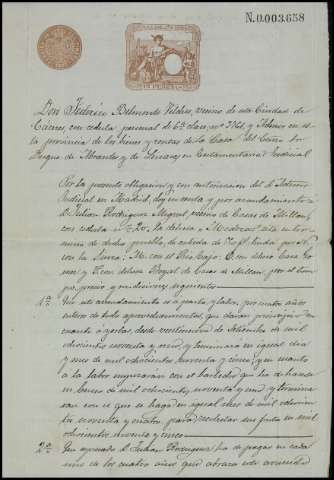 N.0.003,658
Don Federico Belmonte Vilches, vecino de esta Ciudad de
Cáceres, con cedula personal de 6ª clase, nº 3161, y Admor en es
ta provincia de los bienes y rentas de la Casa del Exmo Sor
Duque de Abrantes y de Linares, en testamentaría Judicial
Por la presente obligación y con autorización del Sr Admor
Judicial en Madrid, doy en renta y por arrendamiento á
D. Julian Rodriguez Miguel vecino de Casas de Millan,
con cedula nº 20, la dehesa, de esta en ter-
mino de dicho pueblo, de cabida de linda por N.
con la Sierra; M. con el Rio Tajo; O. con dehesa
y P. con dehesa Boyal de Casas de Millan, por el tiem-
po, precio y condiciones siguientes
1ª Que este arrendamiento es á pasto y labor, por cuatro años
entero de todo aprovechamiento, que darán principio en
cuanto á yerbas, desde veintinueve de Setiembre de mil
ochocientos noventa y uno, y terminará en igual dia
y mes de mil ochocientos noventa y cinco; y en cuanto
á la labor empezarán con el barbecho que ha de hacerse
en Enero de mil ochocientos noventa y uno y termina-
ran con el que se haga en igual mes de mil ochocien-
tos noventa y cuatro para recolectar sus frutos en mil
ochocientos noventa y cinco
2ª Que expresado D. Julian Rodriguez ha de pagar en cada
uno de los cuatro años que abraza este arriendo